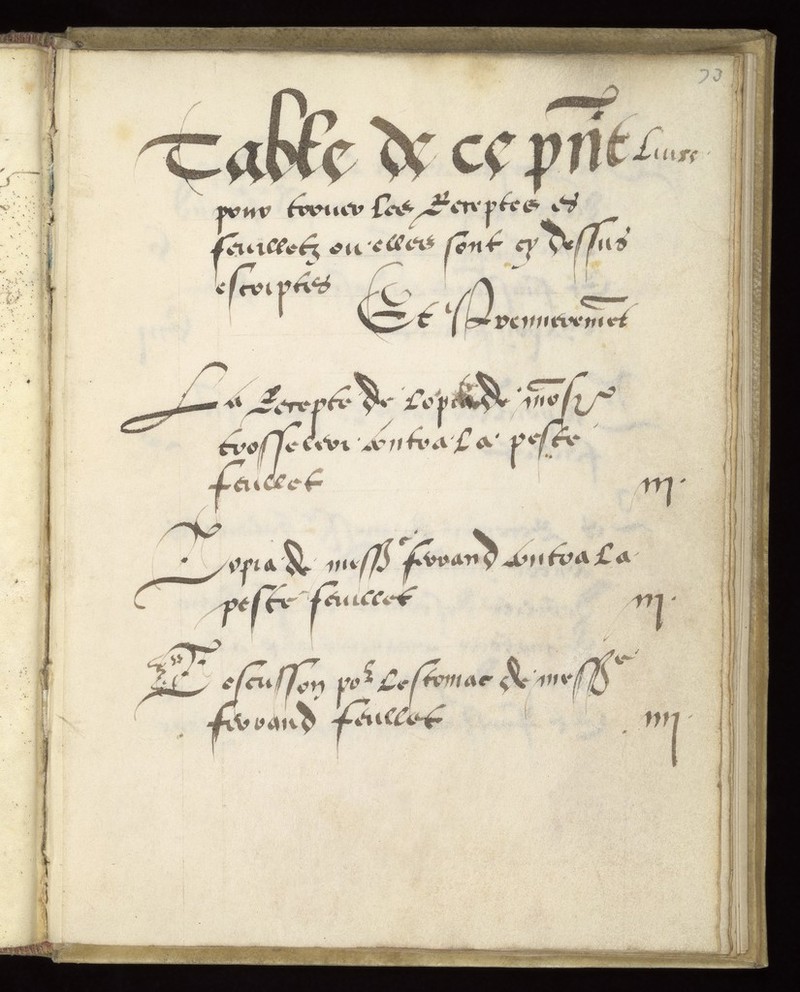 73
Table de ce pn̄t Liure
pour trouver les Receptes es
feuilletz ou elles sont cy dessus
escriptes
Et Premierem̄et
La Recepte de lopiade mōsr
trosseleri contra la peste
feullet iij.
Lopia de messre ferrand contra la
peste feuillet iij.
Lescusson por lestomac de messre
ferrand feullet iiij.